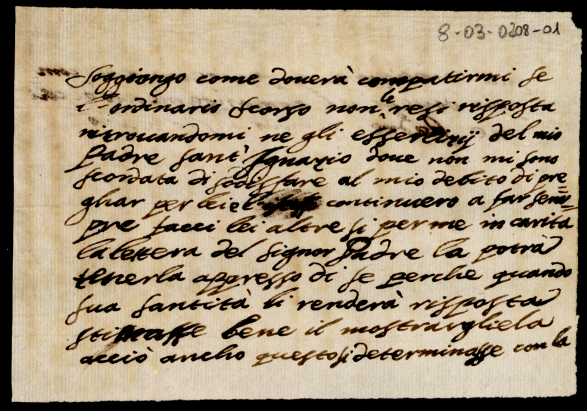 8-03-0208-01
Soggiongo come douerà compatirmi se
l'ordinario scorso non le resi risposta
ritrouandomi ne gli essercitij del mio
Padre sant' Ignazio doue non mi sono
scordata di sodisfare al mio debito di pre=
gliar per lei e continuero a far sem=
pre facci lei altresi per me in carità
la lettera del Signor Padre la potrà
tenerla appresso di se perche quando
sua santità li renderà risposta
stimasse bene il mostrargliela
acciò anche questo si determinasse con la